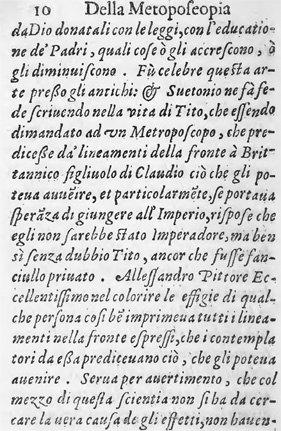 10 Della Metoposcopia
da Dio donatali con le leggi, con l'educatio-
ne de' Padri, quali cose ò gli accrescono, ò
gli diminuiscono. Fù celebre questa ar-
te presso gli antichi: & Suetonio ne fà fe-
de scriuendo nella vita di Tito, che essendo
dimandato ad vn Metroposcopo, che pre-
dicesse da' lineamenti della fronte à Brit-
tannico figliuolo di Claudio ciò che gli po-
teua auuẽire, et particolarmẽte, se portaua
sperãza di giungere all' Imperio, rispose che
egli non sarebbe stato Imperadore, ma ben
sì senza dubbio Tito, ancor che fusse fan-
ciullo priuato. Allessandro Pittore Ec-
cellentissimo nel colorire le effigie di qual-
che persona così bẽ imprimeua tutti i linea-
menti nella fronte espressi, che i contempla
tori da essa prediceuano ciò, che gli poteua
auenire. Serua per auertimento, che col
mezzo di questa scientia non si ha da cer-
care la uera causa de gli effetti, non hauen-